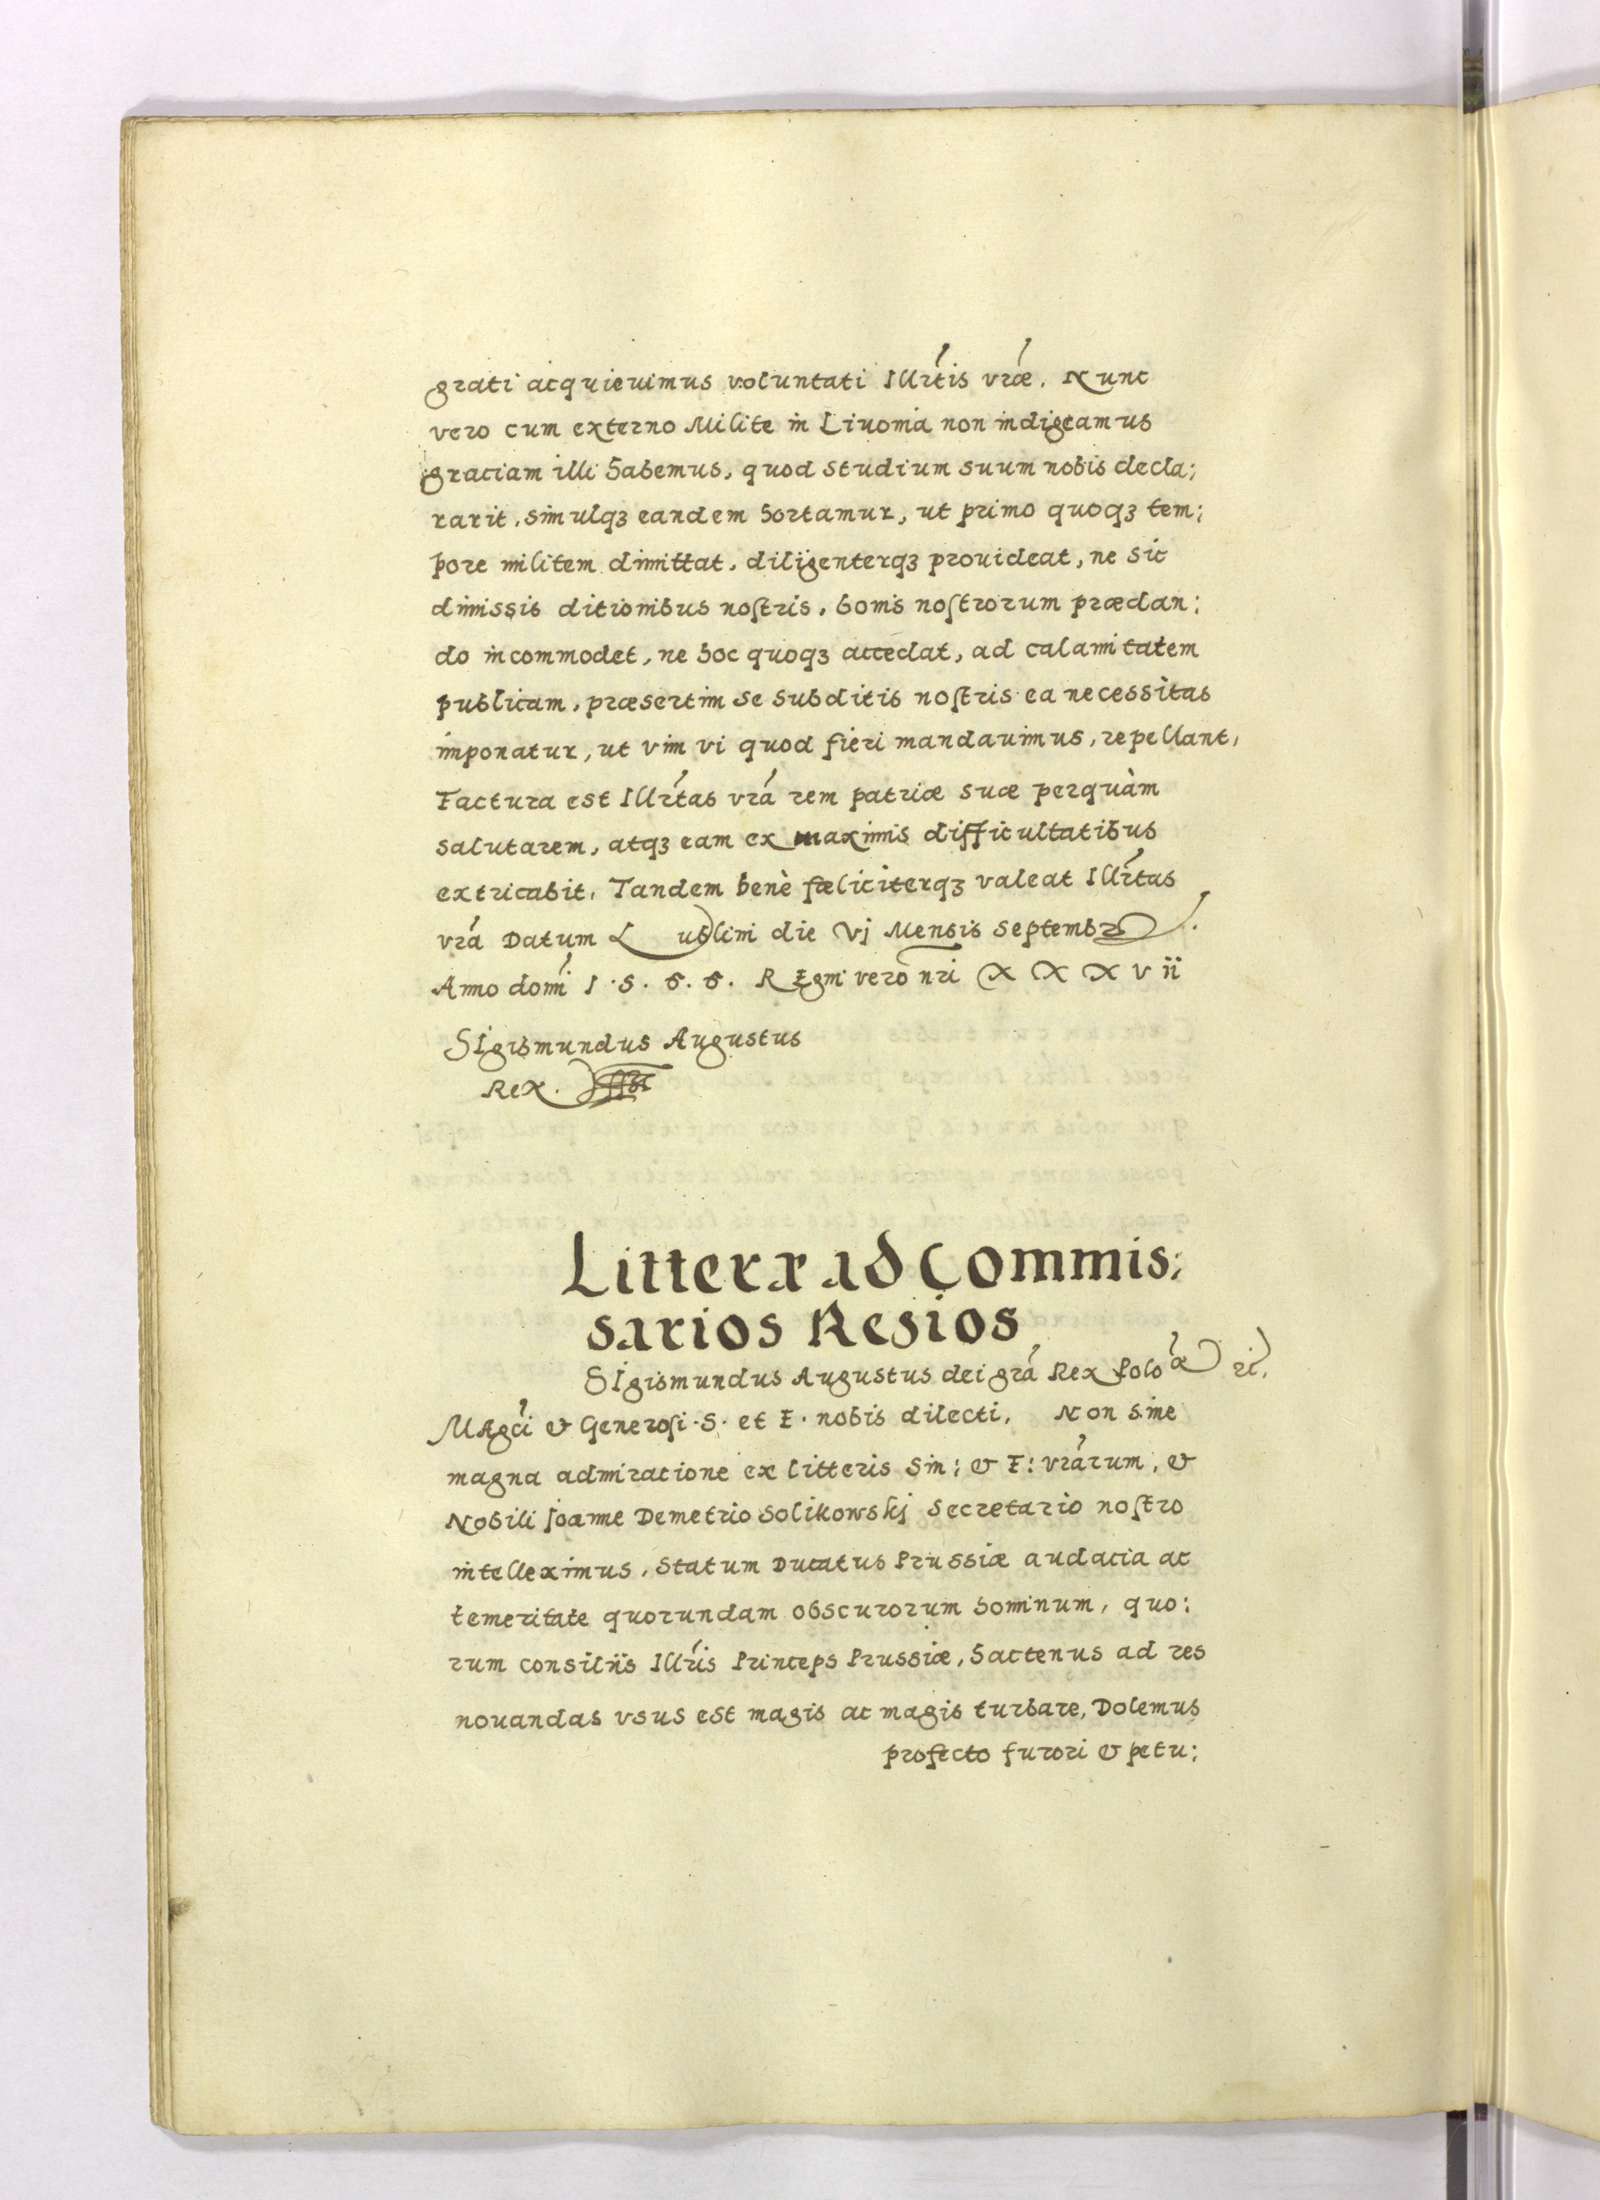 grati acquieuimus voluntati Illr̃tis vr̃æ. Nunc
vero cum externo Milite in Livonia non indigeamus
gratiam illi habemus, quod studium suum nobis decla;
rarit, simulqꝫ eandem hortamur, ut primo quoqꝫ tem;
pore militem dimittat, diligenterqꝫ prouideat, ne sic
dimissis ditionibus noſtris, bonis noſtrorum prædan;
do incommodet, ne hoc quoqꝫ accedat, ad calamitatem
publicam, præsertim se subditis noſtris ea necessitas
imponatur, ut vim vi quod fieri mandauimus, repellant,
Factura est Illr̃tas vr̃a rem patriæ suæ perquàm
salutarem, atqꝫ eam ex maximis difficultatibus
extricabit, Tandem benè fœliciterqꝫ valeat Illr̃tas
vr̃a Datum Lublini die Vj Mensis Septembr
Anno domĩ 1.5.6.6. REgni vero nr̃i XXXVii
SIgismundus Augustus
Rex.
Litteræ ad Commis;
sarios Regios
SIgismundus Augustus dei gr̃a Rex Poloæ
MAgc̃i & Generoſi S. et F. nobis dilecti, Non sine
magna admiratione ex litteris Sin; & F: vr̃arum, &
Nobili Joanne Demetrio Solikowskj Secretario noſtro
intelleximus, Statum Ducatus Prussiæ audacia ac
temeritate quorundam obscurorum hominum, quo:
rum consilijs Illr̃is Princeps Prussiæ, hactenus ad res
nouandas vsus est magis ac magis turbare, Dolemus
profecto furori & petu;